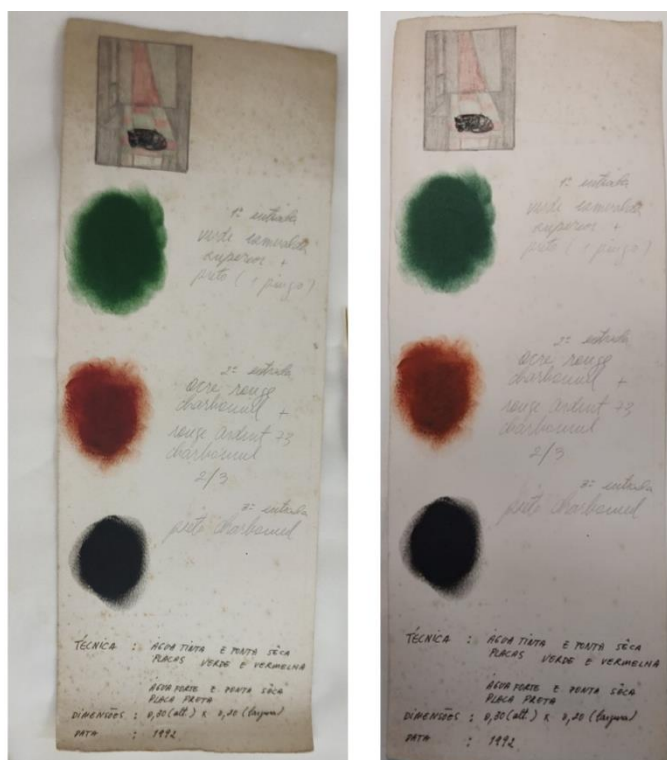 1ª entrada
verde esmeralda
superior +
preto (1 pingo)
2ª entrada
ocre rouge
charbonnel +
rouge ardent 73
charbonnel
2/3
3ª entrada
preto charbonnel
TÉCNICA : ÁGUA TINTA E PONTA SÊCA
PLACAS VERDE E VERMELHA
ÁGUA FORTE E PONTA SÊCA
PLACA PRETA
DIMENSÕES : 0,30 (alt.) x 0,20 (largura)
DATA : 1992
1ª entrada
verde esmeralda
superior +
preto (1 pingo)
2ª entrada
ocre rouge
charbonnel +
rouge ardent 73
charbonnel
2/3
3ª entrada
preto charbonnel
TÉCNICA : ÁGUA TINTA E PONTA SÊCA
PLACAS VERDE E VERMELHA
ÁGUA FORTE E PONTA SÊCA
PLACA PRETA
DIMENSÕES : 0,30 (alt.) x 0,20 (largura)
DATA : 1992